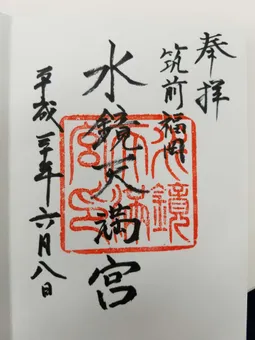 奉拝
筑前福岡
水鏡天満宮
平成三十年六月八日
水鏡